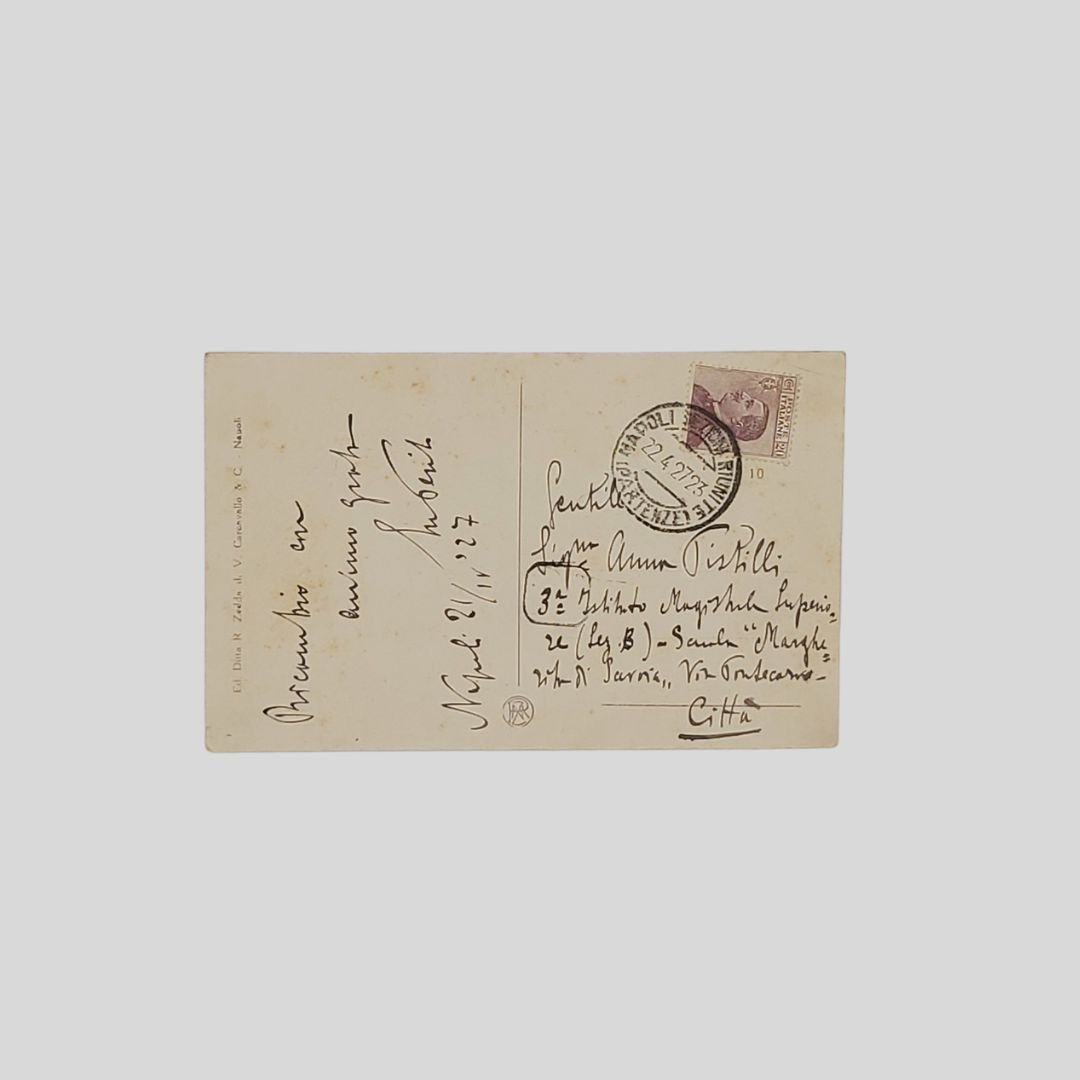 Ricambio con
animo grato
Napoli 21/IV '27
Ed. Ditta R. Zedda di V. Carcavallo & C. - Napoli
POSTE
ITALIANE
20
NAPOLI RIUNITE (PARTENZE)
22.4.27 23
10
Gentile
Signa Anna Pistilli
3ª Istituto Magistrale Superio=
re (Sez. B) - Scuola "Marghe=
rita di Savoia„ Via Pontecorvo -
Città